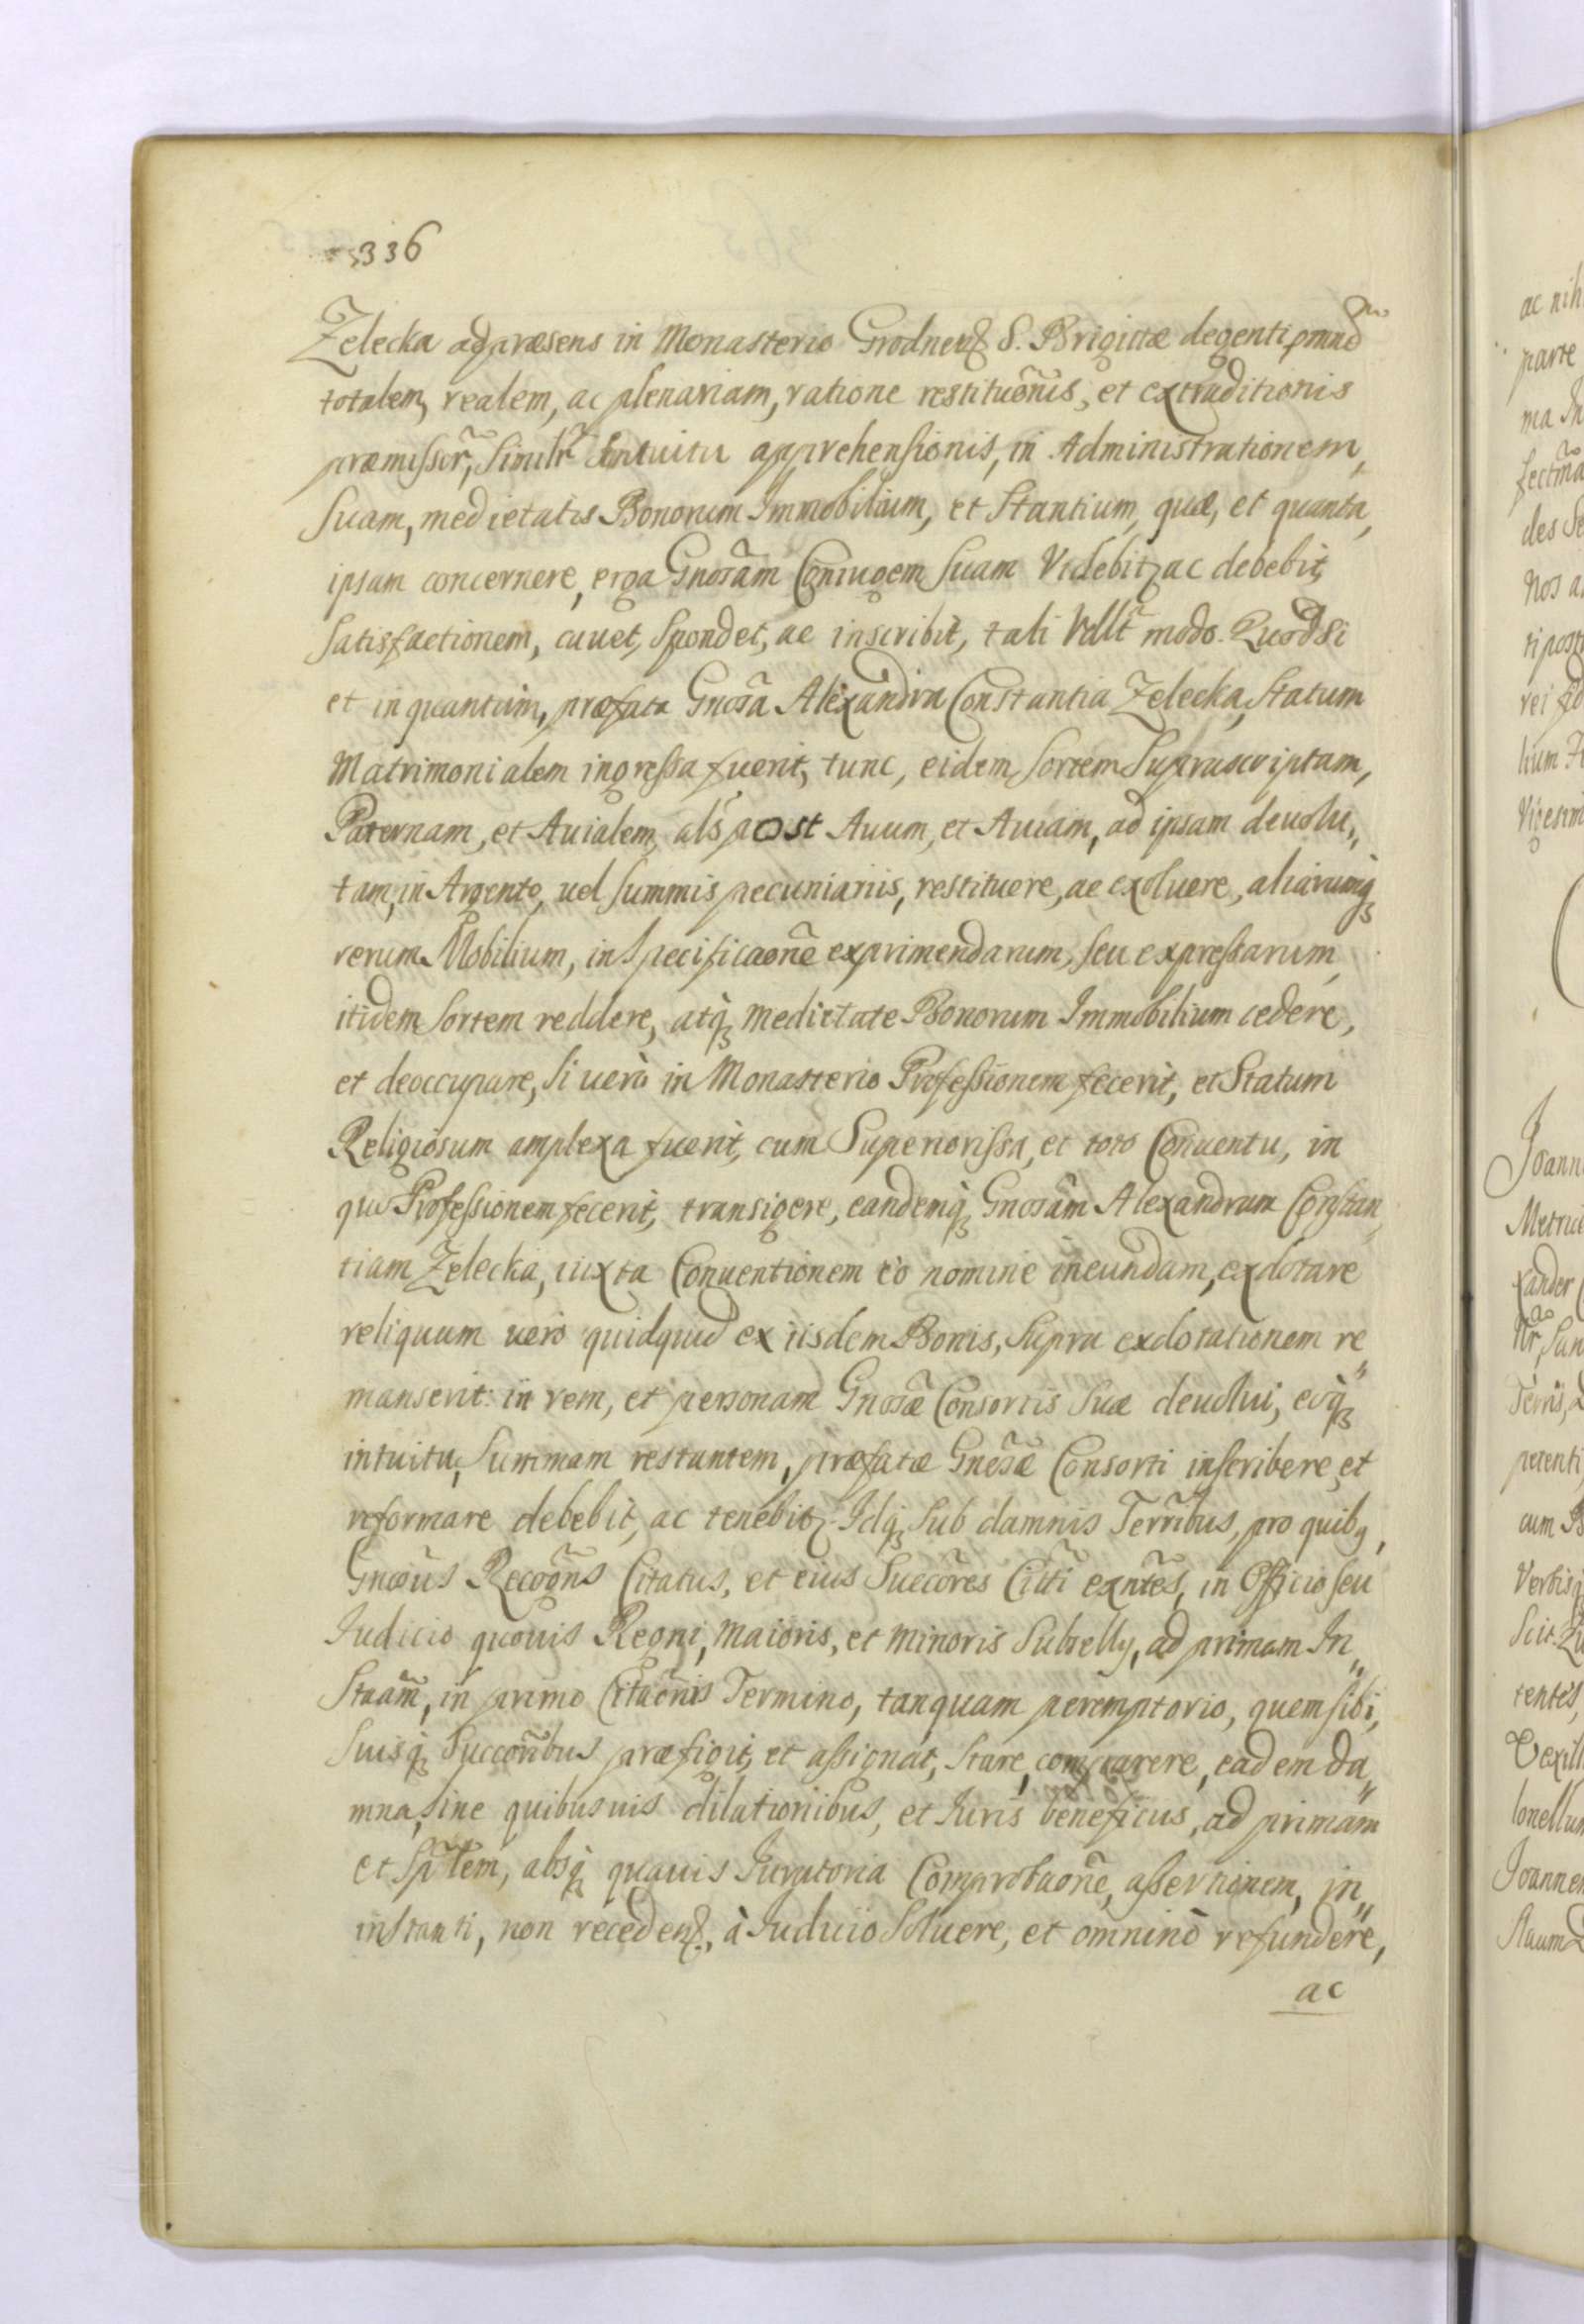 336
Zelecka ad præsens in Monasterio Grodnens S. Brigittæ degenti omnẽ
totalem, realem, ac plenariam, ratione restituõnis, et extraditionis
præmissor̃, Simil̃r Intuitu apprehensionis, in Administrationem,
Suam, medietatis Bonorum Immobilium, et Stantium, quæ, et quanta,
ipsam concernere, erga Gnosãm Coniugem Suam Videbitʒ ac debebit,
Satisfactionem, cauet, Spondet, ac inscribit, tali Vidlt̃ modo. Quod Si
et in quantum, præfata Gnosã Alexandra Constantia Zelecka, Statum
Matrimonialem ingressa fuerit, tunc, eidem Sortem Suprascriptam,
Paternam, et Auialem, als post Auum, et Auiam, ad ipsam deuolu„
tam, in Argento, uel Summis pecuniariis, restituere, ac exoluere, aliarumqʒ
rerum Mobilium, in Specificaonẽ exprimendarum, seu expressarum,
itidem Sortem reddere, atqʒ medietate Bonorum Immobilium cedere,
et deoccupare, Si uerò in Monasterio Professionem fecerit, et Statum
Religiosum amplexa fuerit, cum Superiorissa, et toto Conuentu, in
quo Professionem fecerit, transigere, eandemqʒ Gnosãm Alexandram Constan„
tiam Zelecka, iuxta Conuentionem eò nomine ineundam, exdotare
reliquum uerò quidquid ex iisdem Bonis, Supra exdotationem re„
manserit: in rem, et personam Gnosæ̃ Consortis Suæ deuolui, eoqʒ
intuitu, Summam restantem, præfatæ Gnosæ̃ Consorti inscribere, et
reformare debebit, ac tenebitʒ. Idqʒ Sub damnis Terrĩbus, pro quibꝯ,
Gnosũs Recognõs Citatus, et eius Succõres Citti exñtes, in Officio seu
Iudicio quouis Regni, Maioris, et Minoris Subselly, ad primam In„
Staãm, in primo Citaõnis Termino, tanquam peremptorio, quem sibi,
Suisqʒ Succorĩbus præfigit, et assignat, Stare, comparere, eadem da„
mna, Sine quibusuis dilationibus, et Iuris beneficiis, ad primam
et Sp̃lem, absqʒ quauis Iuratoria Comprobaonẽ, assertionem, in„
instanti, non recedenʒ, à Iudicio Soluere, et omninò refundere,
ac